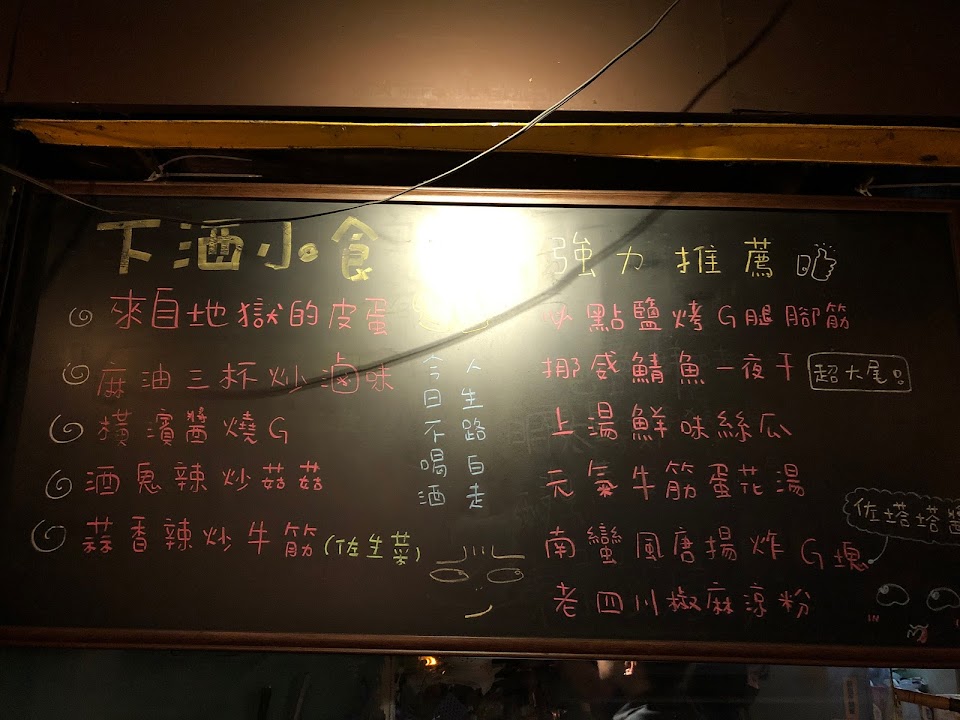 下酒小食
來自地獄的皮蛋
麻油三杯炒滷味
橫濱醬燒G
酒鬼辣炒菇菇
蒜香辣炒牛筋(佐生菜)
人生路自走
今日不喝酒
強力推薦
點鹽烤G腿腳筋
挪威鯖魚一夜干 超大尾!!
上湯鮮味絲瓜
元氣牛筋蛋花湯
南蠻風唐揚炸G塊
佐塔塔醬
老四川椒麻涼粉
IN